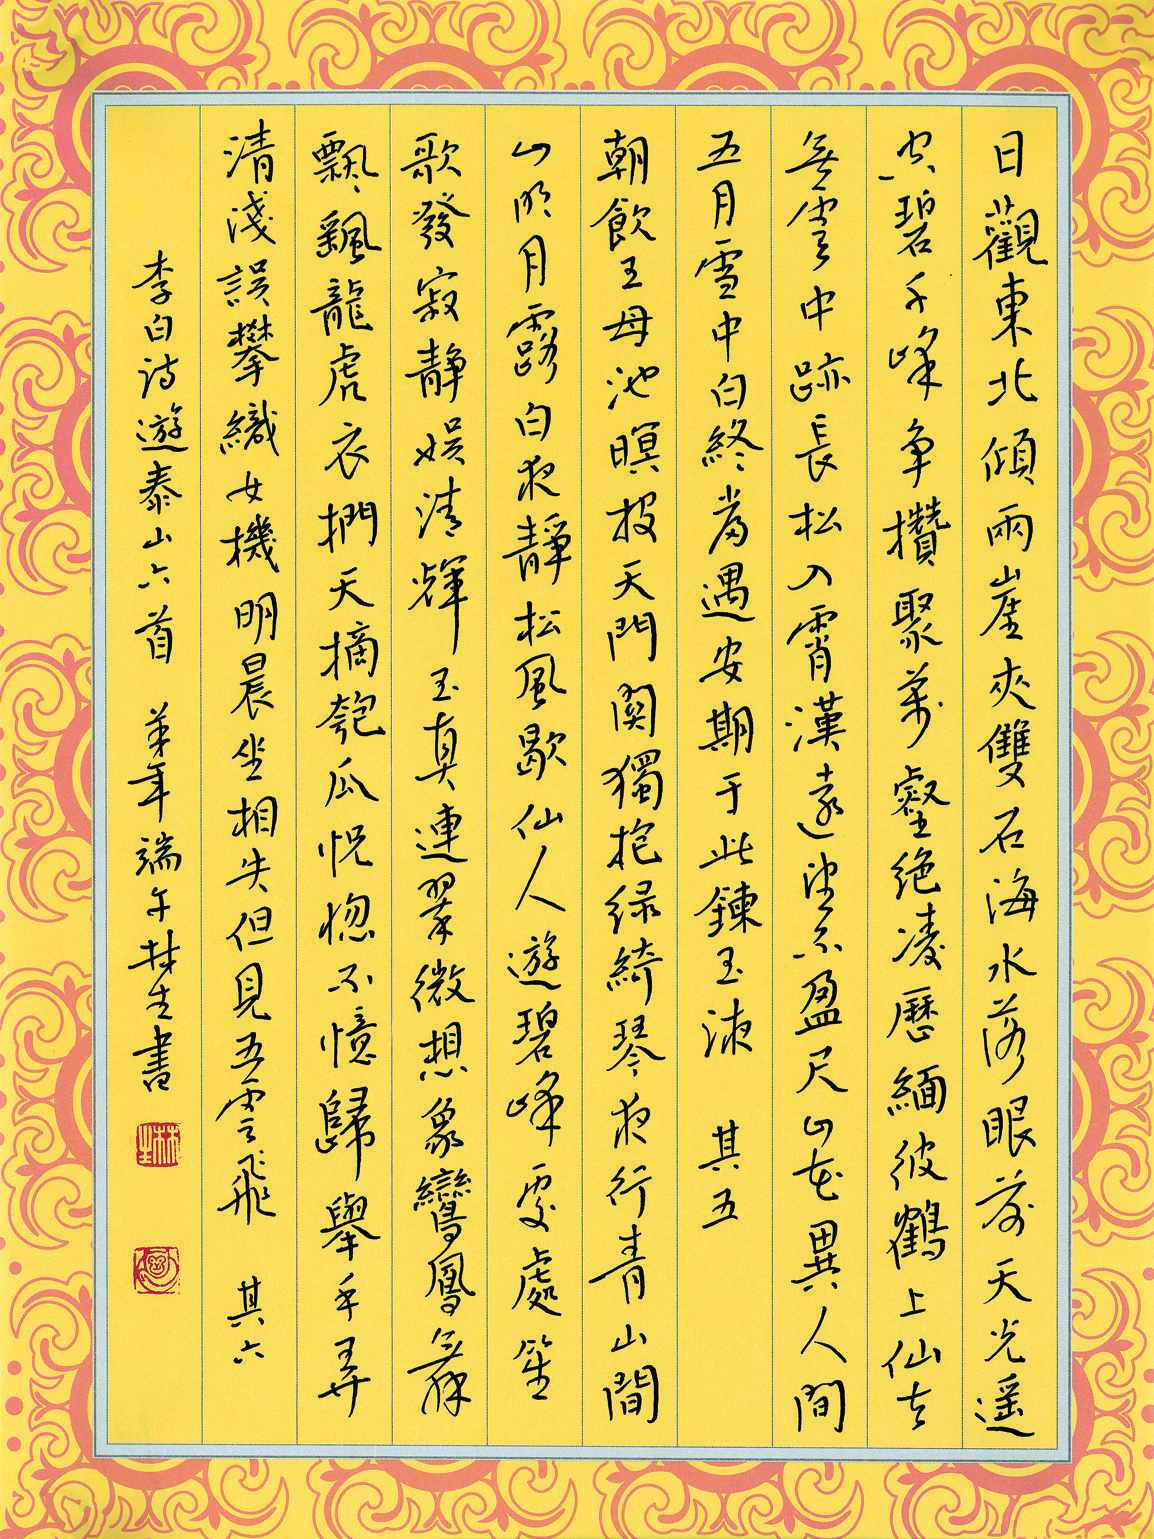 日觀東北傾兩崖夾雙石海水落眼前天光遥
空碧千峰争攢聚萬壑绝凌歷緬彼鶴上仙去
無雲中跡長松入霄漢遠望不盈尺山花異人間
五月雪中白終當遇安期于此鍊玉液 其五
朝飲王母池暝投天門關獨抱绿綺琴夜行青山間
山明月露白夜靜松風歇仙人遊碧峰處處笙
歌發寂静娱清輝玉真連翠微想象鸞鳳舞
飄飖龍虎衣捫天摘匏瓜恍惚不憶歸舉手弄
清淺誤攀織女機明晨坐相失但見五雲飛 其六
李白詩遊泰山六首 年端午林生書
林生